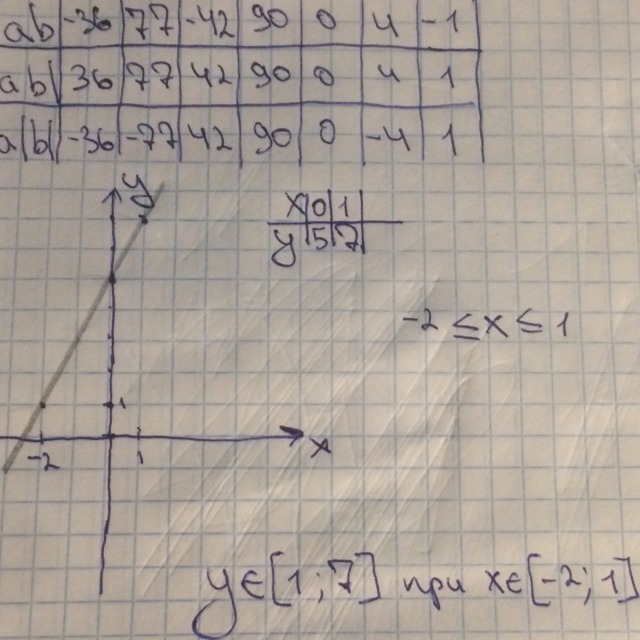 ab -36 77 -42 90 0 4 -1
ab| 36 77 42 90 0 4 1
a|b| -36 -77 42 90 0 -4 1
y
x 0 1
y 5 7
-2 ≤ x ≤ 1
1
-2 1 x
y∈[1;7] при x∈[-2;1]